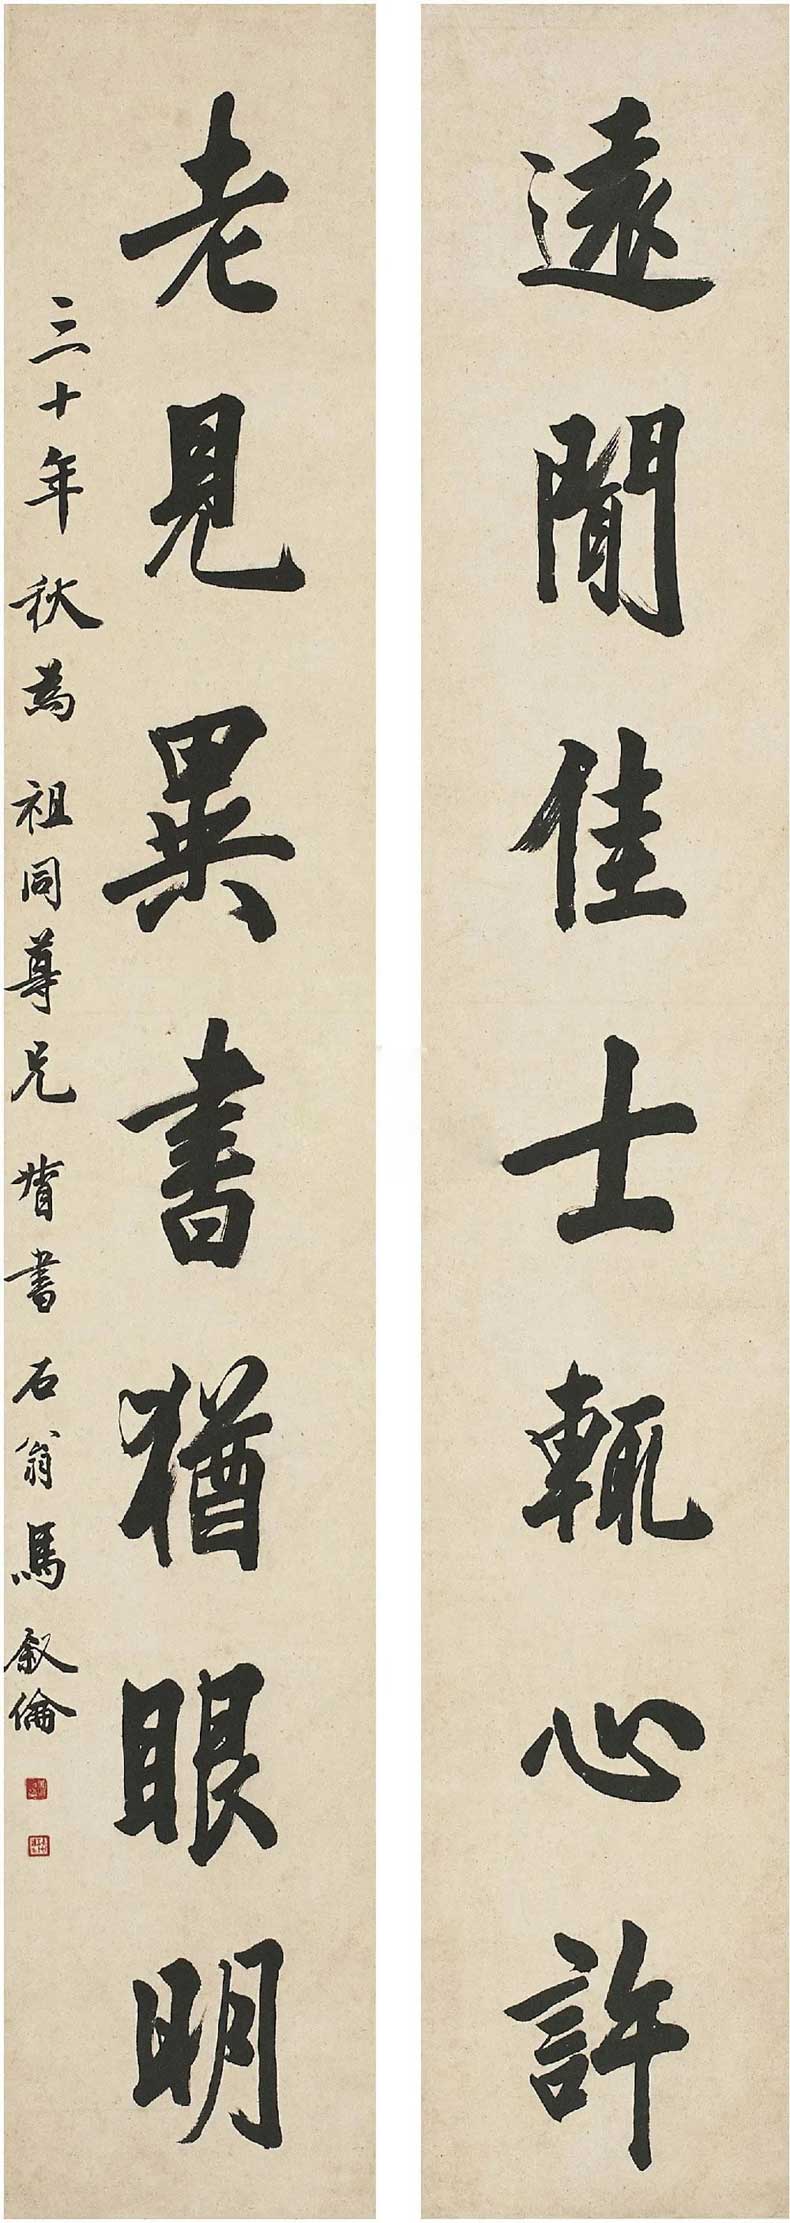 遠聞佳士輒心許
老見異書猶眼明
三十年秋為祖同尊兄督書石翁馬叙倫